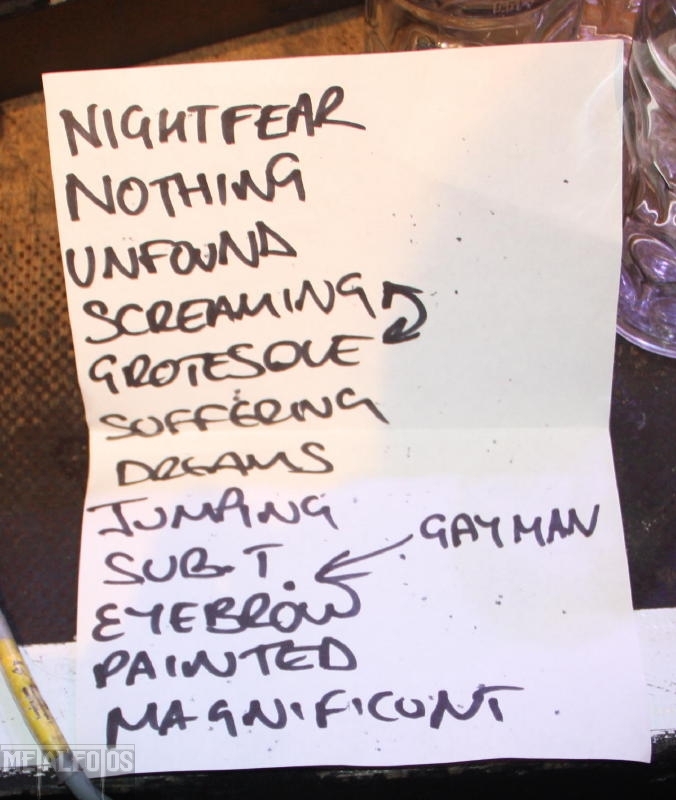 NIGHTFEAR
NOTHING
UNFOUND
SCREAMING
GROTESQUE
SUFFERING
DREAMS
JUMPING
SUB.T.
GAY MAN
EYEBROW
PAINTED
MAGNIFICONT
METALFOTOS